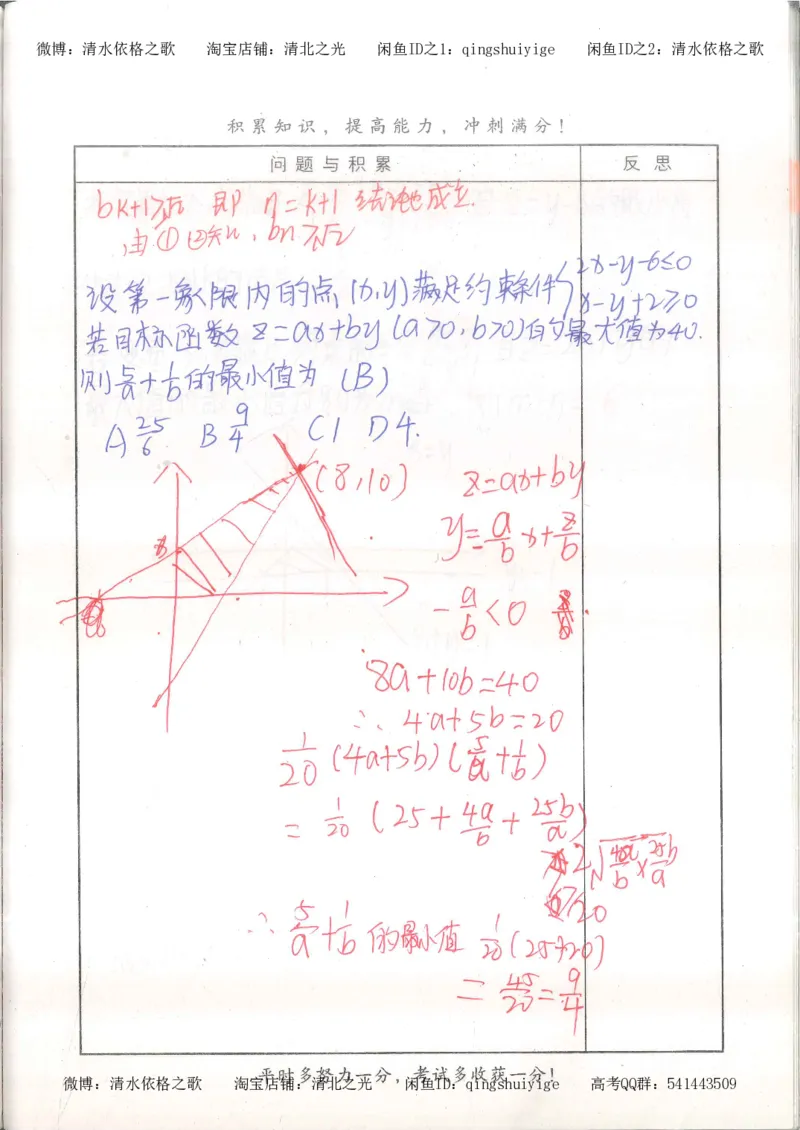 微博：清水依格之歌 淘宝店铺：清北之光 闲鱼ID之1：qingshuiyige 闲鱼ID之2：清水依格之歌
积累知识，提高能力，冲刺满分！
问题与积累 反思
bk+1≥√2 即 n=k+1 结论成立.
由①②知, bn≥√2
设第一象限内的点(x,y)满足约束条件{2x-y-6≤0
x-y+2≥0
若目标函数 z=ax+by (a>0,b>0)的最大值为40.
则5/a+1/b的最小值为 (B)
A 25/6 B 9/4 C 1 D 4.
(8,10)
z=ax+by
y=-a/b x+z/b
-a/b<0
8a+10b=40
∴ 4a+5b=20
1/20 (4a+5b)(5/a+1/b)
= 1/20 (25+4a/b+25b/a)
2√(4a/b×25b/a)
20
∴ 5/a+1/b 的最小值 1/20(25+20)
=45/20=9/4
平时多努力一分，考试多收获一分！
微博：清水依格之歌 淘宝店铺：清北之光 闲鱼ID：qingshuiyige 高考QQ群：541443509